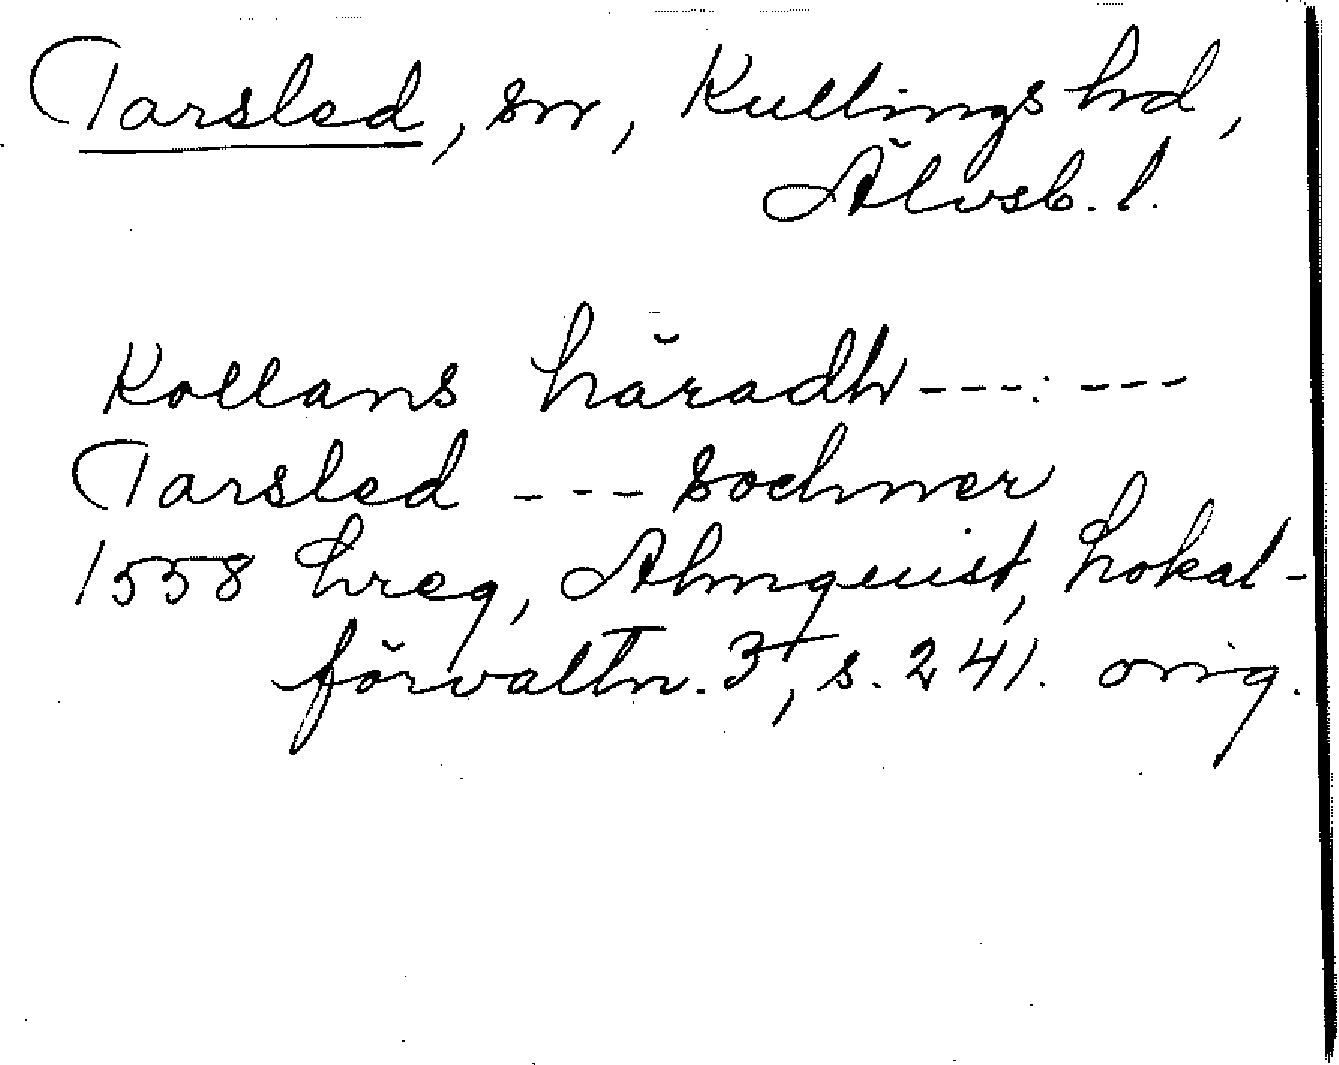 Tarsled, sn, Kullings hd,
Älvsb. l.
Kollans häradh --- : ---
Tarsled --- Sochner
1558 hreg, Almquist, Lokal-
förvaltn. 3, s. 241. orig.